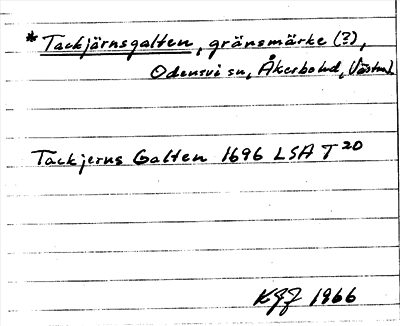 * Tackjärnsgalten, gränsmärke (?),
Odensvi sn, Åkerbo hd, Västml.
Tackjerns Galten 1696 LSA T 20
KGF 1966